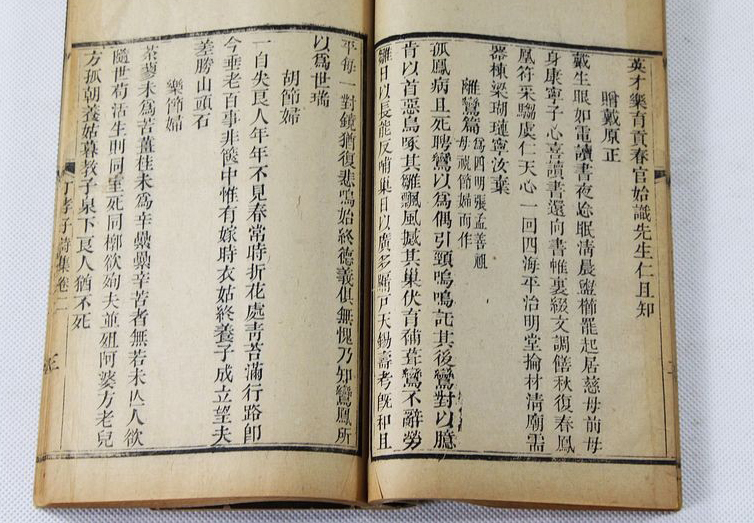 英才樂育貢春官始識先生仁且知
贈戴原正
戴生眼如電讀書夜眠清晨盥櫛罷起居慈母前母
身康寧子心喜讀書還向書帷裏綴文調僖秋復春鳳
凰符采騶虞仁天心一回四海平治明堂掄材清廟需
器棟梁瑚璉寧汝棄
離鸞篇
為四明張孟善祖
母視節婦而作
孤鳳病且死聘鸞以爲偶引頸鳴鳴託其後鸞對以臆
肯以首惡鳥啄其雛飄風撼其巢伏育補葺鸞不辭勞
雛日以長能反哺巢日以廣多牖戸天錫壽考旣和且
平每一對鏡猶復悲鳴始終德義俱無愧乃知鸞鳳所
以爲世瑞
胡節婦
一自失良人年年不見春常時折花處靑苔滿行路卽
今垂老百事非篋中惟有嫁時衣姑終養子成立望夫
差勝山頭石
樂節婦
荼蓼未爲苦薑桂未爲辛鼎鼎辛苦者無若未亾人欲
隨世苟活生則同室死同槨欲殉夫並殂阿婆方老兒
方孤朝養姑暮教子泉下良人猶不死
丁孝子詩集卷二